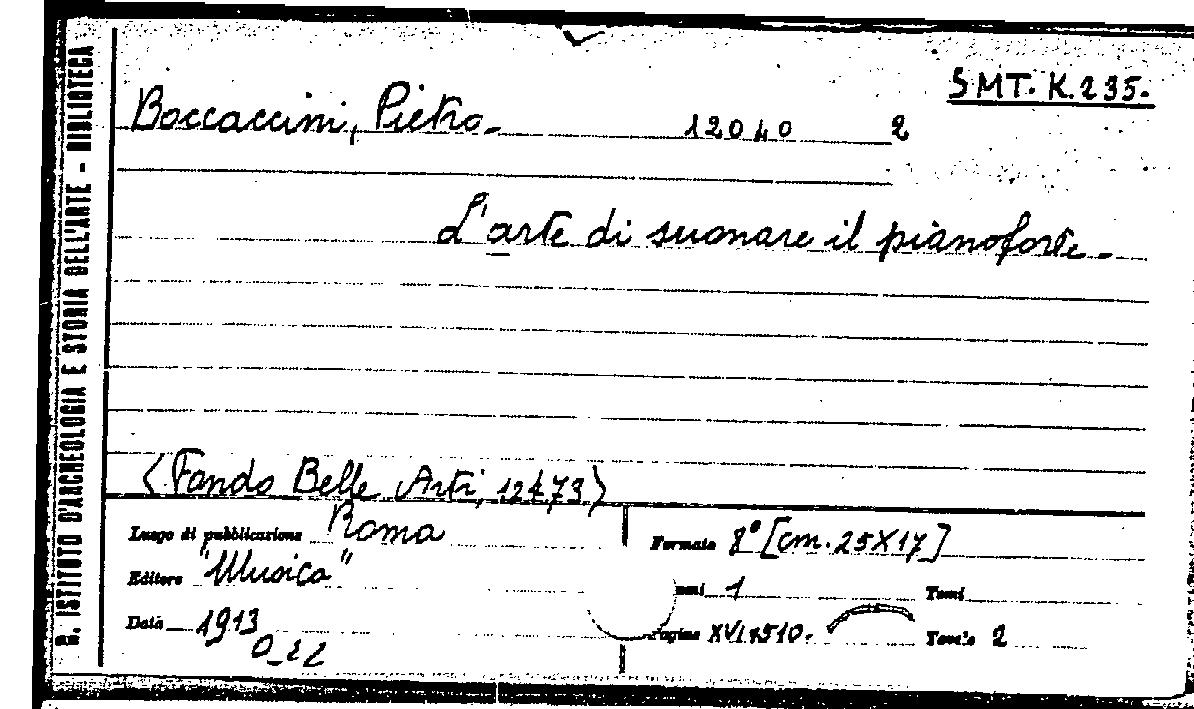 R. ISTITUTO D'ARCHEOLOGIA E STORIA DELL'ARTE - BIBLIOTECA
SMT. K.235.
Boccaccini, Pietro. 12040 2
L'arte di suonare il pianoforte.
(Fondo Belle Arti, 12473)
Luogo di pubblicazione Roma
Formato 8° [cm. 25X17]
Editore "Musica"
umi 1 Tomi
Data 1913
Pagine 510. Tavole 2